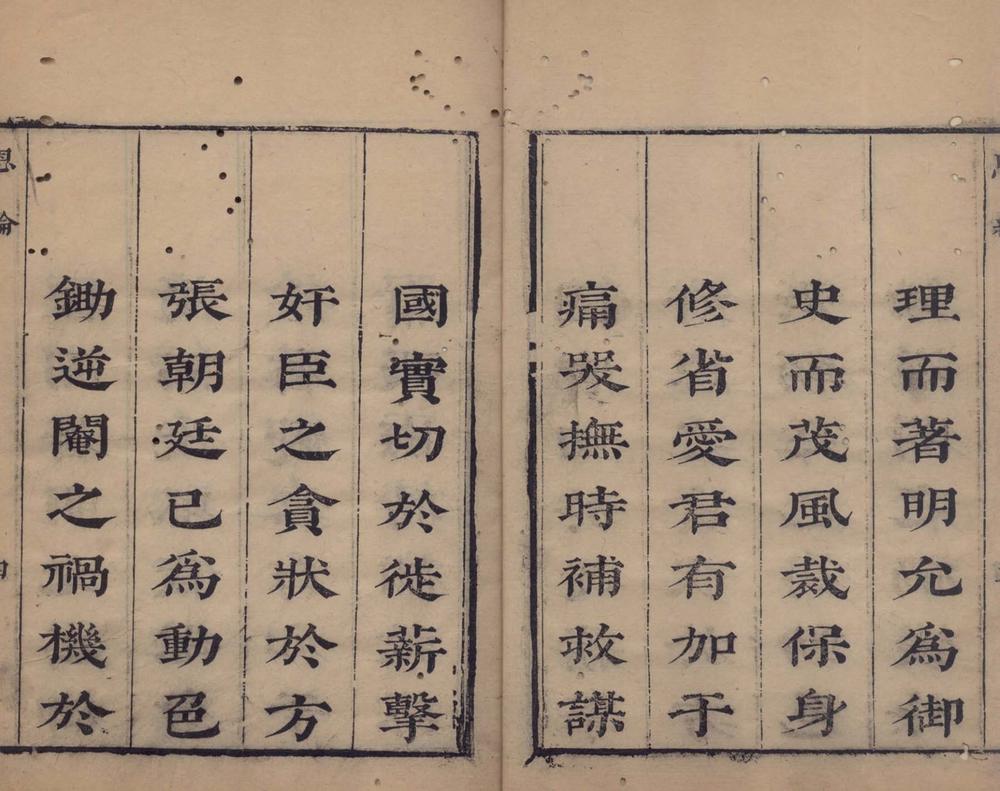 理而著明允爲御
史而茂風裁保身
修省愛君有加于
痛哭撫時補救謀
國實切於徙薪擊
奸臣之貪狀於方
張朝廷已爲動色
鋤逆閹之禍機於